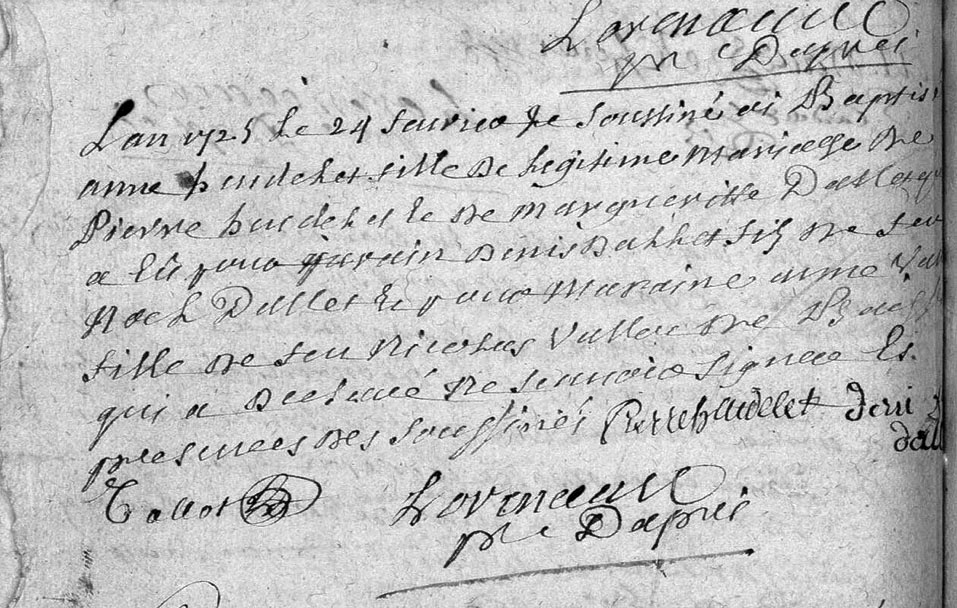 Lorneau
pr D'aprei
Lan 1725 le 24 feurier Je soussiné ai Baptis
anne hudelet fille de legitime mariage de
Pierre hudelet et de margueritte Dallet qui
a eü pour parain denis Dallet fils de feu
Roch Dallet et pour maraine anne Val
fille de feu Nicolas Vallou de
qui a declaré ne scauoir signer Es
presences des soussinés Pierre hudelet deni
dall
Collot
Lorneau
pr D'aprei